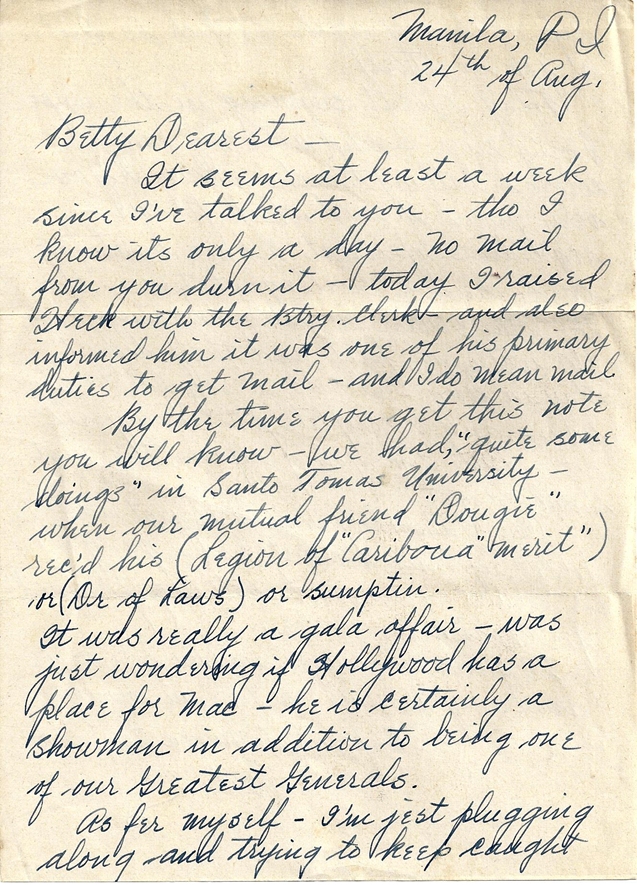 Manila, P I
24th of Aug.
Betty Dearest —
It seems at least a week
since I've talked to you – tho I
know its only a day – no mail
from you durn it – today I raised
Heck with the Btry. Clerk – and also
informed him it was one of his primary
duties to get mail – and I do mean mail
By the time you get this note
you will know – we had, "quite some
doings" in Santo Tomas University –
when our mutual friend "Dougie"
rec'd his (Legion of "Cariboua" merit")
or (Dr of Laws) or sumptin.
It was really a gala affair – was
just wondering if Hollywood has a
place for Mac – he is certainly a
showman in addition to being one
of our Greatest Generals.
As fer myself – I'm jest plugging
along – and trying to keep caught